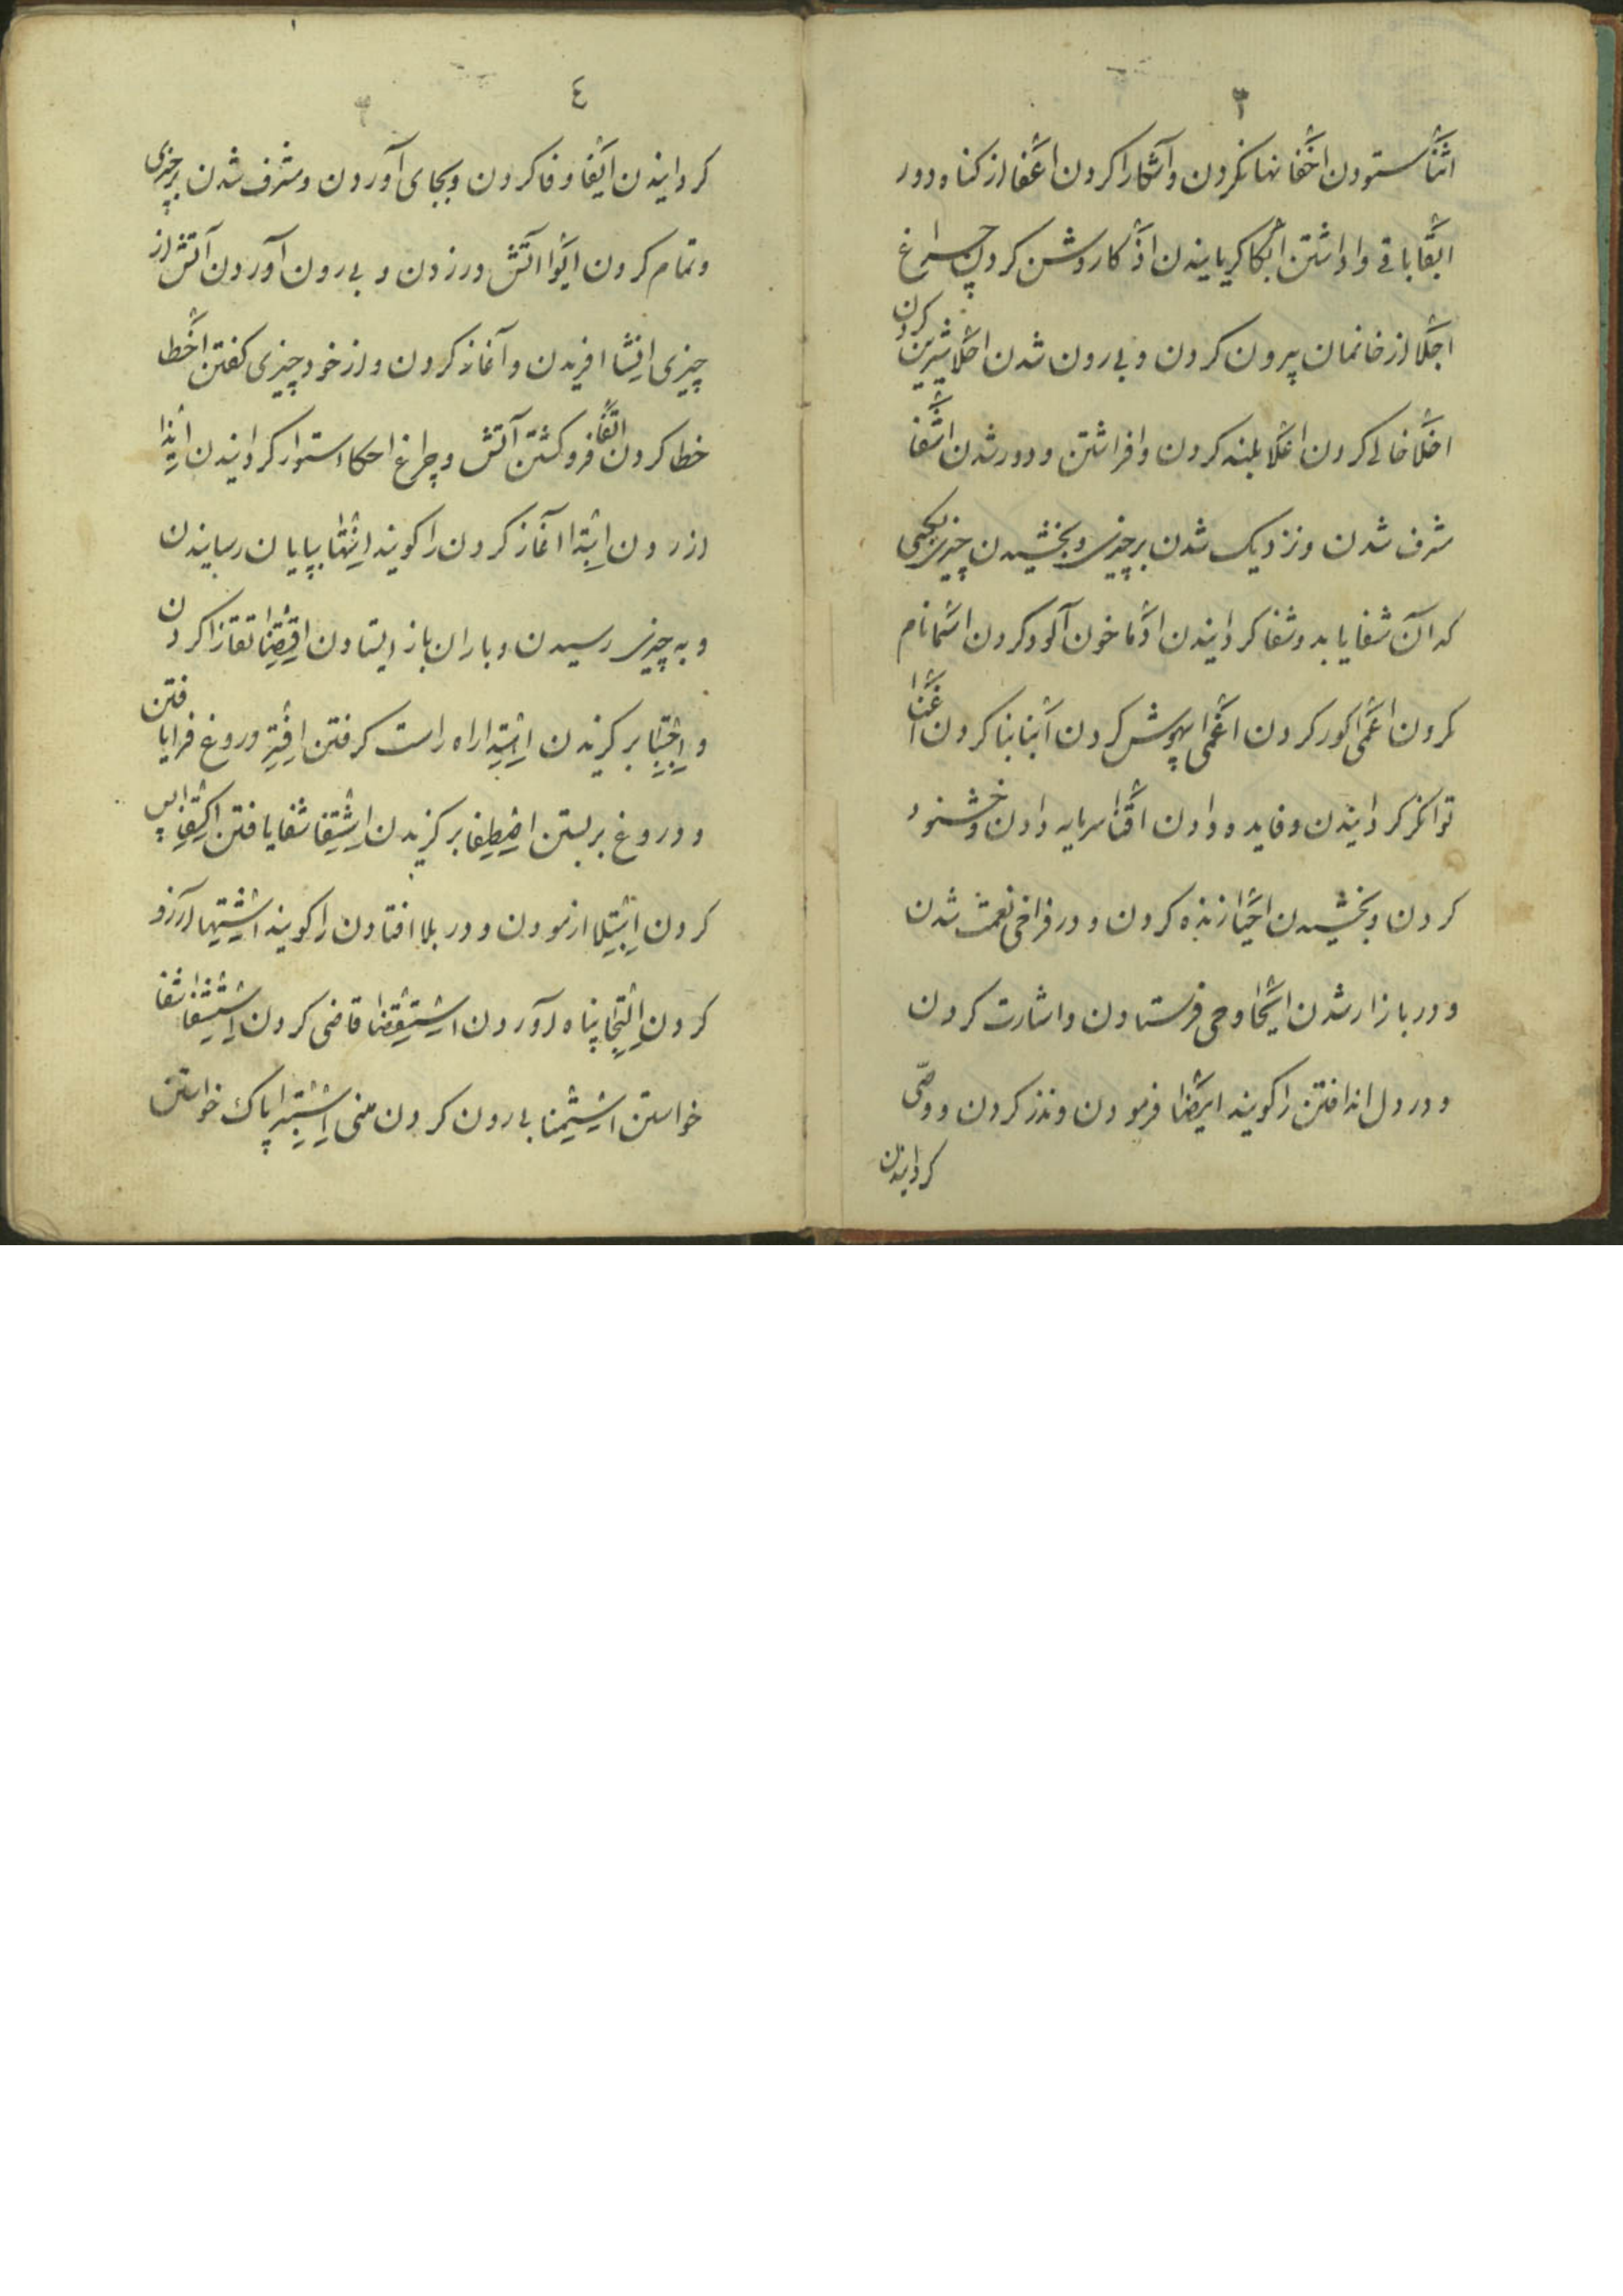 ۳
اثنا ستودن اخفا نهانكردن و آشكارا كردن اعفا از كناه دور
ابقا باقى واداشتن ابكا كريانيدن اذكا روشن كردن چراغ
اجلا از خانمان بيرون كردن و بيرون شدن احلا شيرين كردن
اخلا خالى كردن اعلا بلند كردن و افراشتن و دور شدن اشفا
مشرف شدن و نزديك شدن بر چيزى و بخشيدن چيزى بكسى
كه از آن شفا يابد و شفا كردانيدن ادما خون آلود كردن اسما نام
كردن اعمى كور كردن اغمى بيهوش كردن ابنا بنا كردن اغنا
توانكر كردانيدن و فايده دادن اقنا سرمايه دادن و خشنود
كردن و بخشيدن احيا زنده كردن و در فراخى نعمت شدن
و در بازار شدن ايحا وحى فرستادن و اشارت كردن
و در دل انداختن را كويند ايصا فرمودن و نذر كردن و وصى
كردانيدن
٤
كردانيدن ايفا وفا كردن و بجاى آوردن و مشرف شدن بر چيزى
و تمام كردن ايرا آتش در زدن و بيرون آوردن آتش از
چيزى انشا افريدن و آغاز كردن و از خود چيزى كفتن اخطا
خطا كردن اطفا فرو كشتن آتش و چراغ احكا استوار كردانيدن ايذا
ازردن ابتدا آغاز كردن را كويند انتها بپايان رسانيدن
و به چيزى رسيدن و باران باز ايستادن اقتضا تقازا كردن
و اجتبا بركزيدن اهتدا راه راست كرفتن افترا دروغ فرا يافتن
و دروغ بر بستن اصطفا بركزيدن اشتفا شفا يافتن اكتفا بس
كردن ابتلا ازمودن و در بلا افتادن را كويند اشتها آرزو
كردن التجا پناه آوردن استقضا قاضى كردن استشفا شفا
خواستن استمنا بيرون كردن منى استبرا پاك خواستن